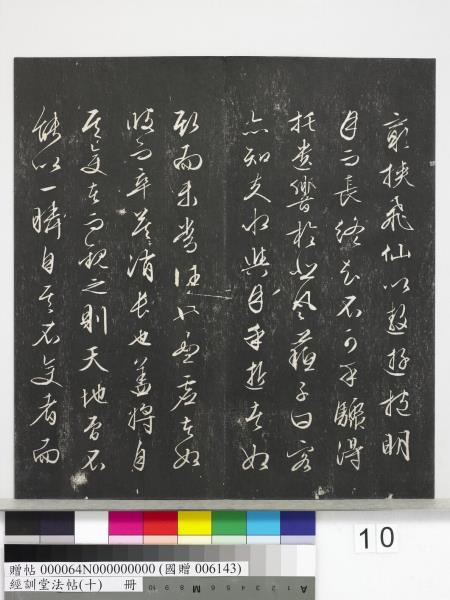 窮挾飛仙以遨遊抱明
月而長終知不可乎驟得
托遺響於悲風蘇子曰客
亦知夫水與月乎逝者如
斯而未嘗往也盈虛者如
彼而卒莫消長也蓋將自
其變者而觀之則天地曾不
能以一瞬自其不變者而
10
贈帖 000064N000000000 (國贈 006143)
經訓堂法帖(十) 冊